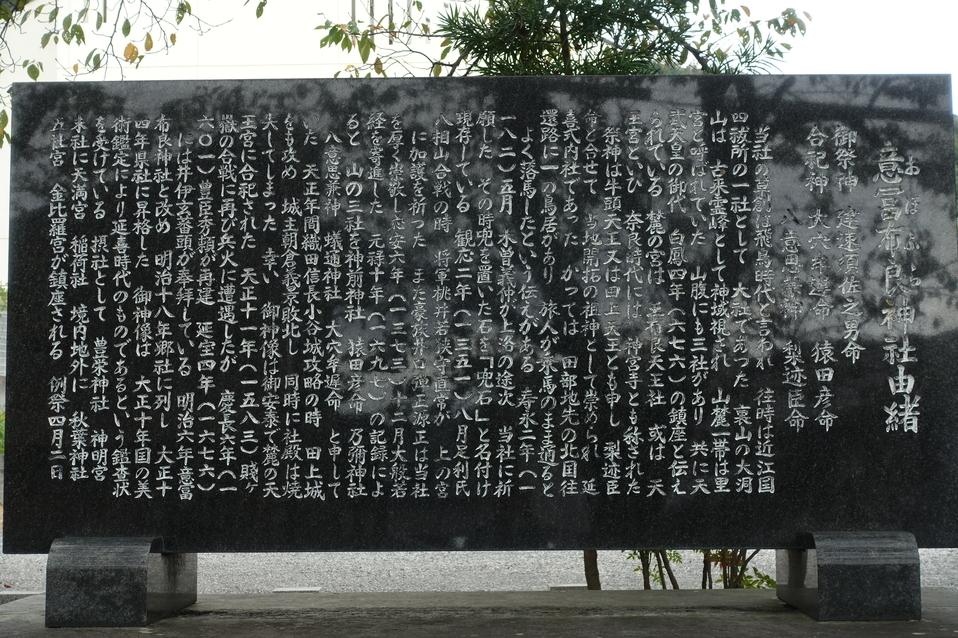 おほふら
意冨布良神社由緒
御祭神 建速須佐之男命
合祀神 大穴牟遅命 猿田彦命
八意思兼神 梨迹臣命
当社の草創は飛鳥時代と言われ 往時は近江国
四祓所の一社として 大社であった 裏山の大洞
山は 古来霊峰として神域視され 山麓一帯は里
宮と呼ばれていた 山腹にも三社があり 共に天
武天皇の御代 白鳳四年(六七六)の鎮座と伝え
られている 麓の宮は 布良天王社 或は 天
王宮といひ 奈良時代には 神宮寺とも称された
祭神は牛頭天王又は田上天王とも申し 梨迹臣
命と合せて 当地開拓の祖神として崇められ 延
喜式内社であった かつては 田部地先の北国往
還路に一の鳥居があり 旅人が乗馬のまま通ると
よく落馬したという伝えがある 寿永二年(一
一八二)五月 木曽義仲が上洛の途次 当社に祈
願した その時兜を置いた石を「兜石」と名付け
現存している 観応二年(一三五一)八月足利氏
八相山合戦の時 将軍桃井若狭守直常が 上の宮
に加護を祈った また豪族井口弾正源正は当社
を厚く崇敬し応安六年(一三七三)十二月大般若
経を寄進した 元禄十年(一六九七)の記録によ
ると 山の三社を神前神社 猿田彦命 乃弥神社
八意思兼神 蟻通神社 大穴牟遅命 と申して
いた 天正年間織田信長小谷城攻略の時 田上城
をも攻め 城主朝倉義景敗北し 同時に社殿は焼
失してしまった 幸い 御神像は御安泰で麓の天
王宮に合祀された 天正十一年(一五八三)賤ヶ
嶽の合戦に再び兵火に遭遇したが 慶長六年(一
六〇一)豊臣秀頼が再建 延宝四年(一六七六)
には井伊玄蕃頭が奉拝している 明治六年意冨
布良神社と改め 明治十八年郷社に列し 大正十
四年県社に昇格した 御神像は 大正十年国の美
術鑑定により延喜時代のものであるという鑑査状
を受けている 摂社として 豊栄神社 神明宮
末社に天満宮 稲荷社 境内地外に 秋葉神社
五社宮 金比羅宮が鎮座される 例祭四月二日